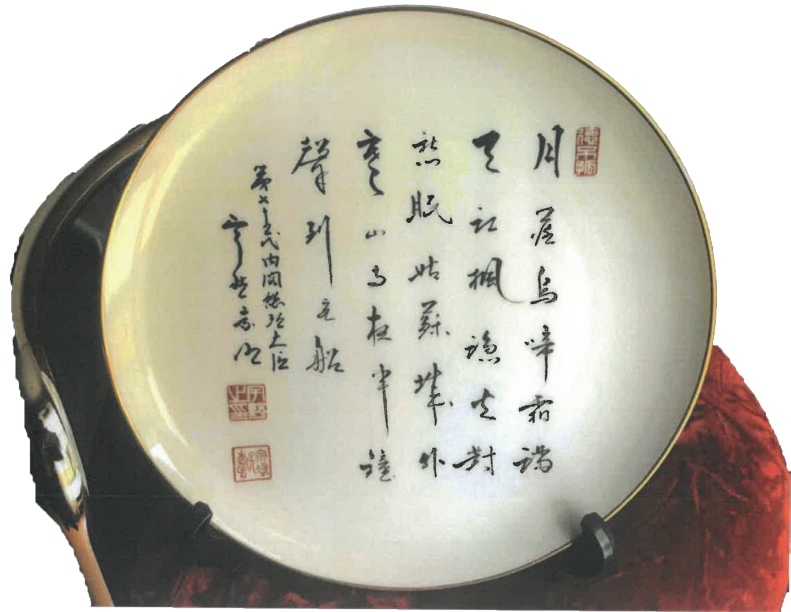 月落烏啼霜満
天江楓漁火對
愁眠姑蘇城外
寒山寺夜半鐘
聲到客船
第七十五代内閣総理大臣
宇野宗佑